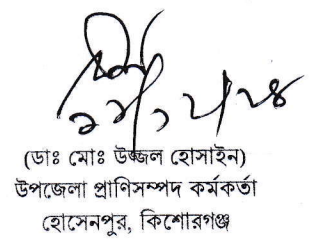 (ডাঃ মোঃ উজ্জল হোসাইন)
উপজেলা প্রাণিসম্পদ কর্মকর্তা
হোসেনপুর, কিশোরগঞ্জ